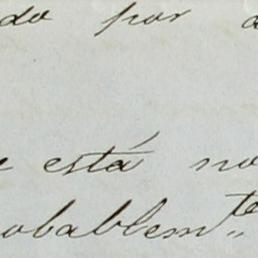 do por a
e está no
obablem.te